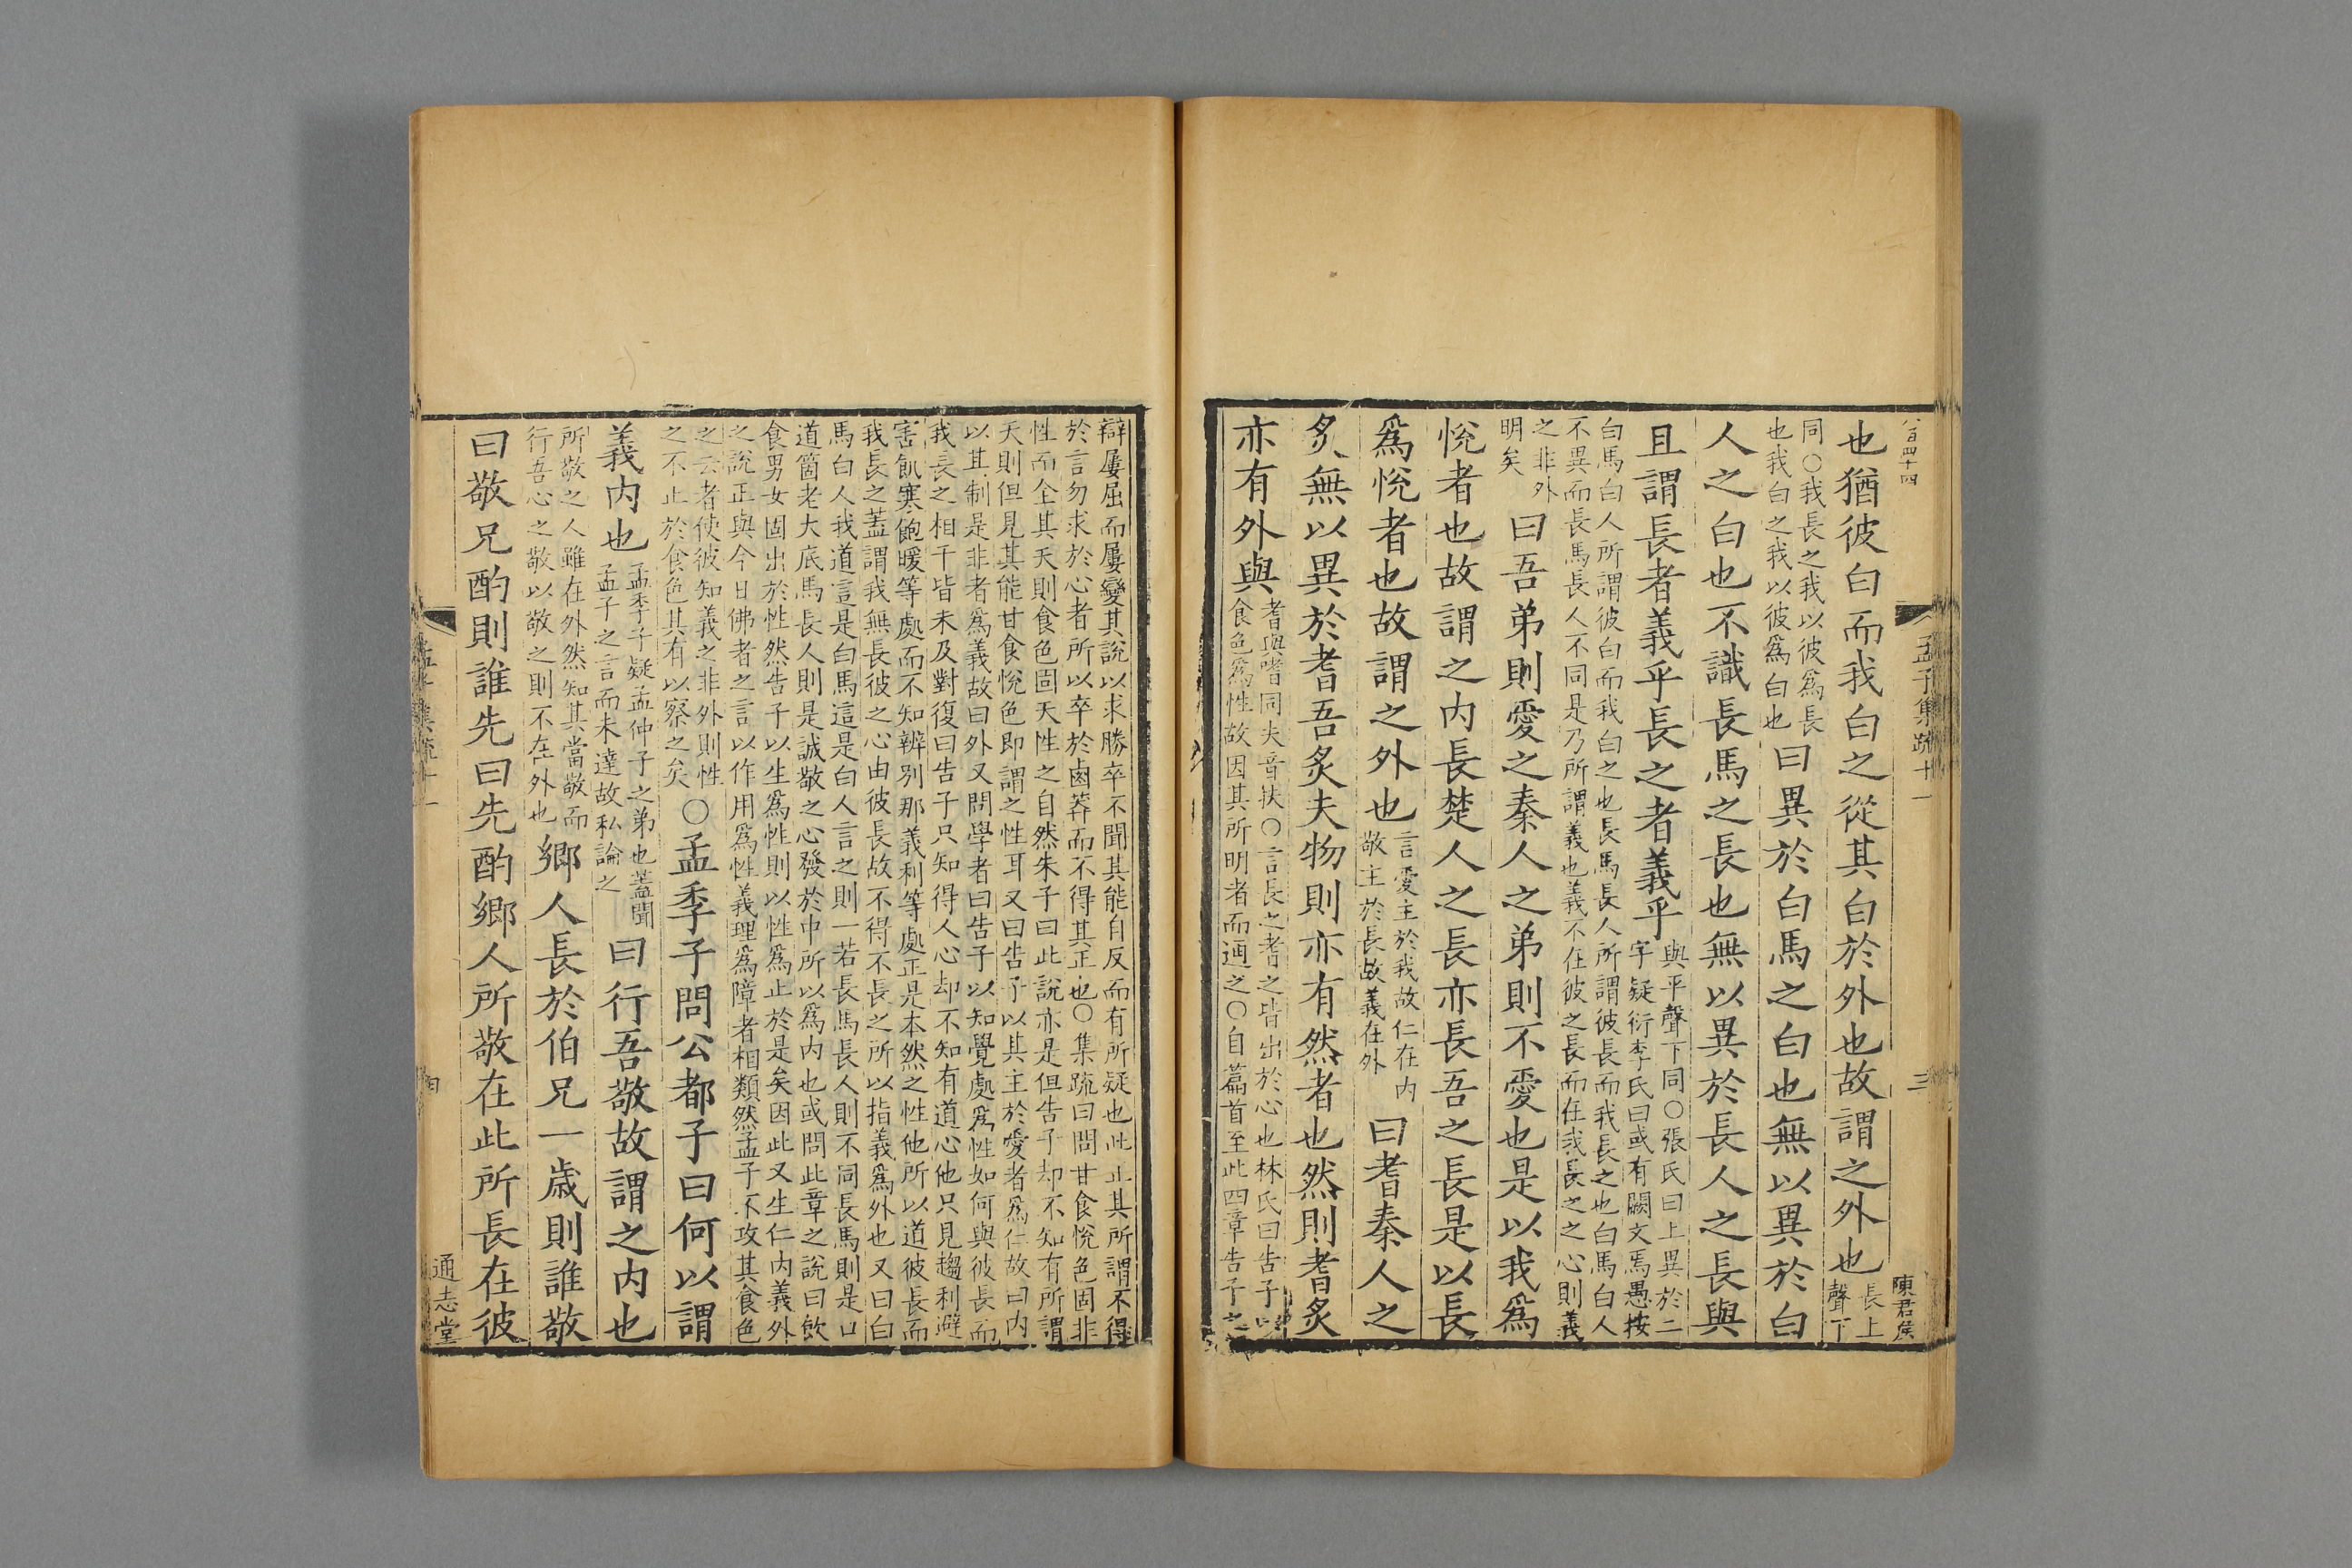 八百四十四
孟子集疏十一
三
陳君侯
也猶彼白而我白之從其白於外也故謂之外也長上
聲下
同○我長之我以彼爲長
也我白之我以彼爲白也
曰異於白馬之白也無以異於白
人之白也不識長馬之長也無以異於長人之長與
且謂長者義乎長之者義乎與平聲下同○張氏曰上異於二
字疑衍李氏曰或有闕文焉愚按
白馬白人所謂彼白而我白之也長馬長人所謂彼長而我長之也白馬白人
不異而長馬長人不同是乃所謂義也義不在彼之長而在我長之之心則義
之非外
明矣
曰吾弟則愛之秦人之弟則不愛也是以我爲
悅者也故謂之内長楚人之長亦長吾之長是以長
爲悅者也故謂之外也言愛主於我故仁在内
敬主於長故義在外
曰耆秦人之
炙無以異於耆吾炙夫物則亦有然者也然則耆炙
亦有外與耆與嗜同夫音扶○言長之耆之皆出於心也林氏曰告子以
食色爲性故因其所明者而通之○自篇首至此四章告子之
辯屢屈而屢變其說以求勝卒不聞其能自反而有所疑也此正其所謂不得
於言勿求於心者所以卒於鹵莽而不得其正也○集疏曰問甘食悅色固非
性而全其天則食色固天性之自然朱子曰此說亦是但告子却不知有所謂
天則但見其能甘食悅色即謂之性耳又曰告子以其主於愛者爲仁故曰内
以其制是非者爲義故曰外又問學者曰告子以知覺處爲性如何與彼長而
我長之相干皆未及對復曰告子只知得人心却不知有道心他只見趨利避
害飢寒飽暖等處而不知辨别那義利等處正是本然之性他所以道彼長而
我長之蓋謂我無長彼之心由彼長故不得不長之所以指義爲外也又曰白
馬白人我道言是白馬這是白人言之則一若長馬長人則不同長馬則是口
道箇老大底馬長人則是誠敬之心發於中所以爲内也或問此章之說曰飲
食男女固出於性然告子以生爲性則以性爲止於是矣因此又生仁内義外
之說正與今日佛者之言以作用爲性義理爲障者相類然孟子不攻其食色
之云者使彼知義之非外則性
之不止於食色其有以察之矣
○孟季子問公都子曰何以謂
義内也孟季子疑孟仲子之弟也蓋聞
孟子之言而未達故私論之
曰行吾敬故謂之内也
所敬之人雖在外然知其當敬而
行吾心之敬以敬之則不在外也
鄉人長於伯兄一歲則誰敬
曰敬兄酌則誰先曰先酌鄉人所敬在此所長在彼
通志堂